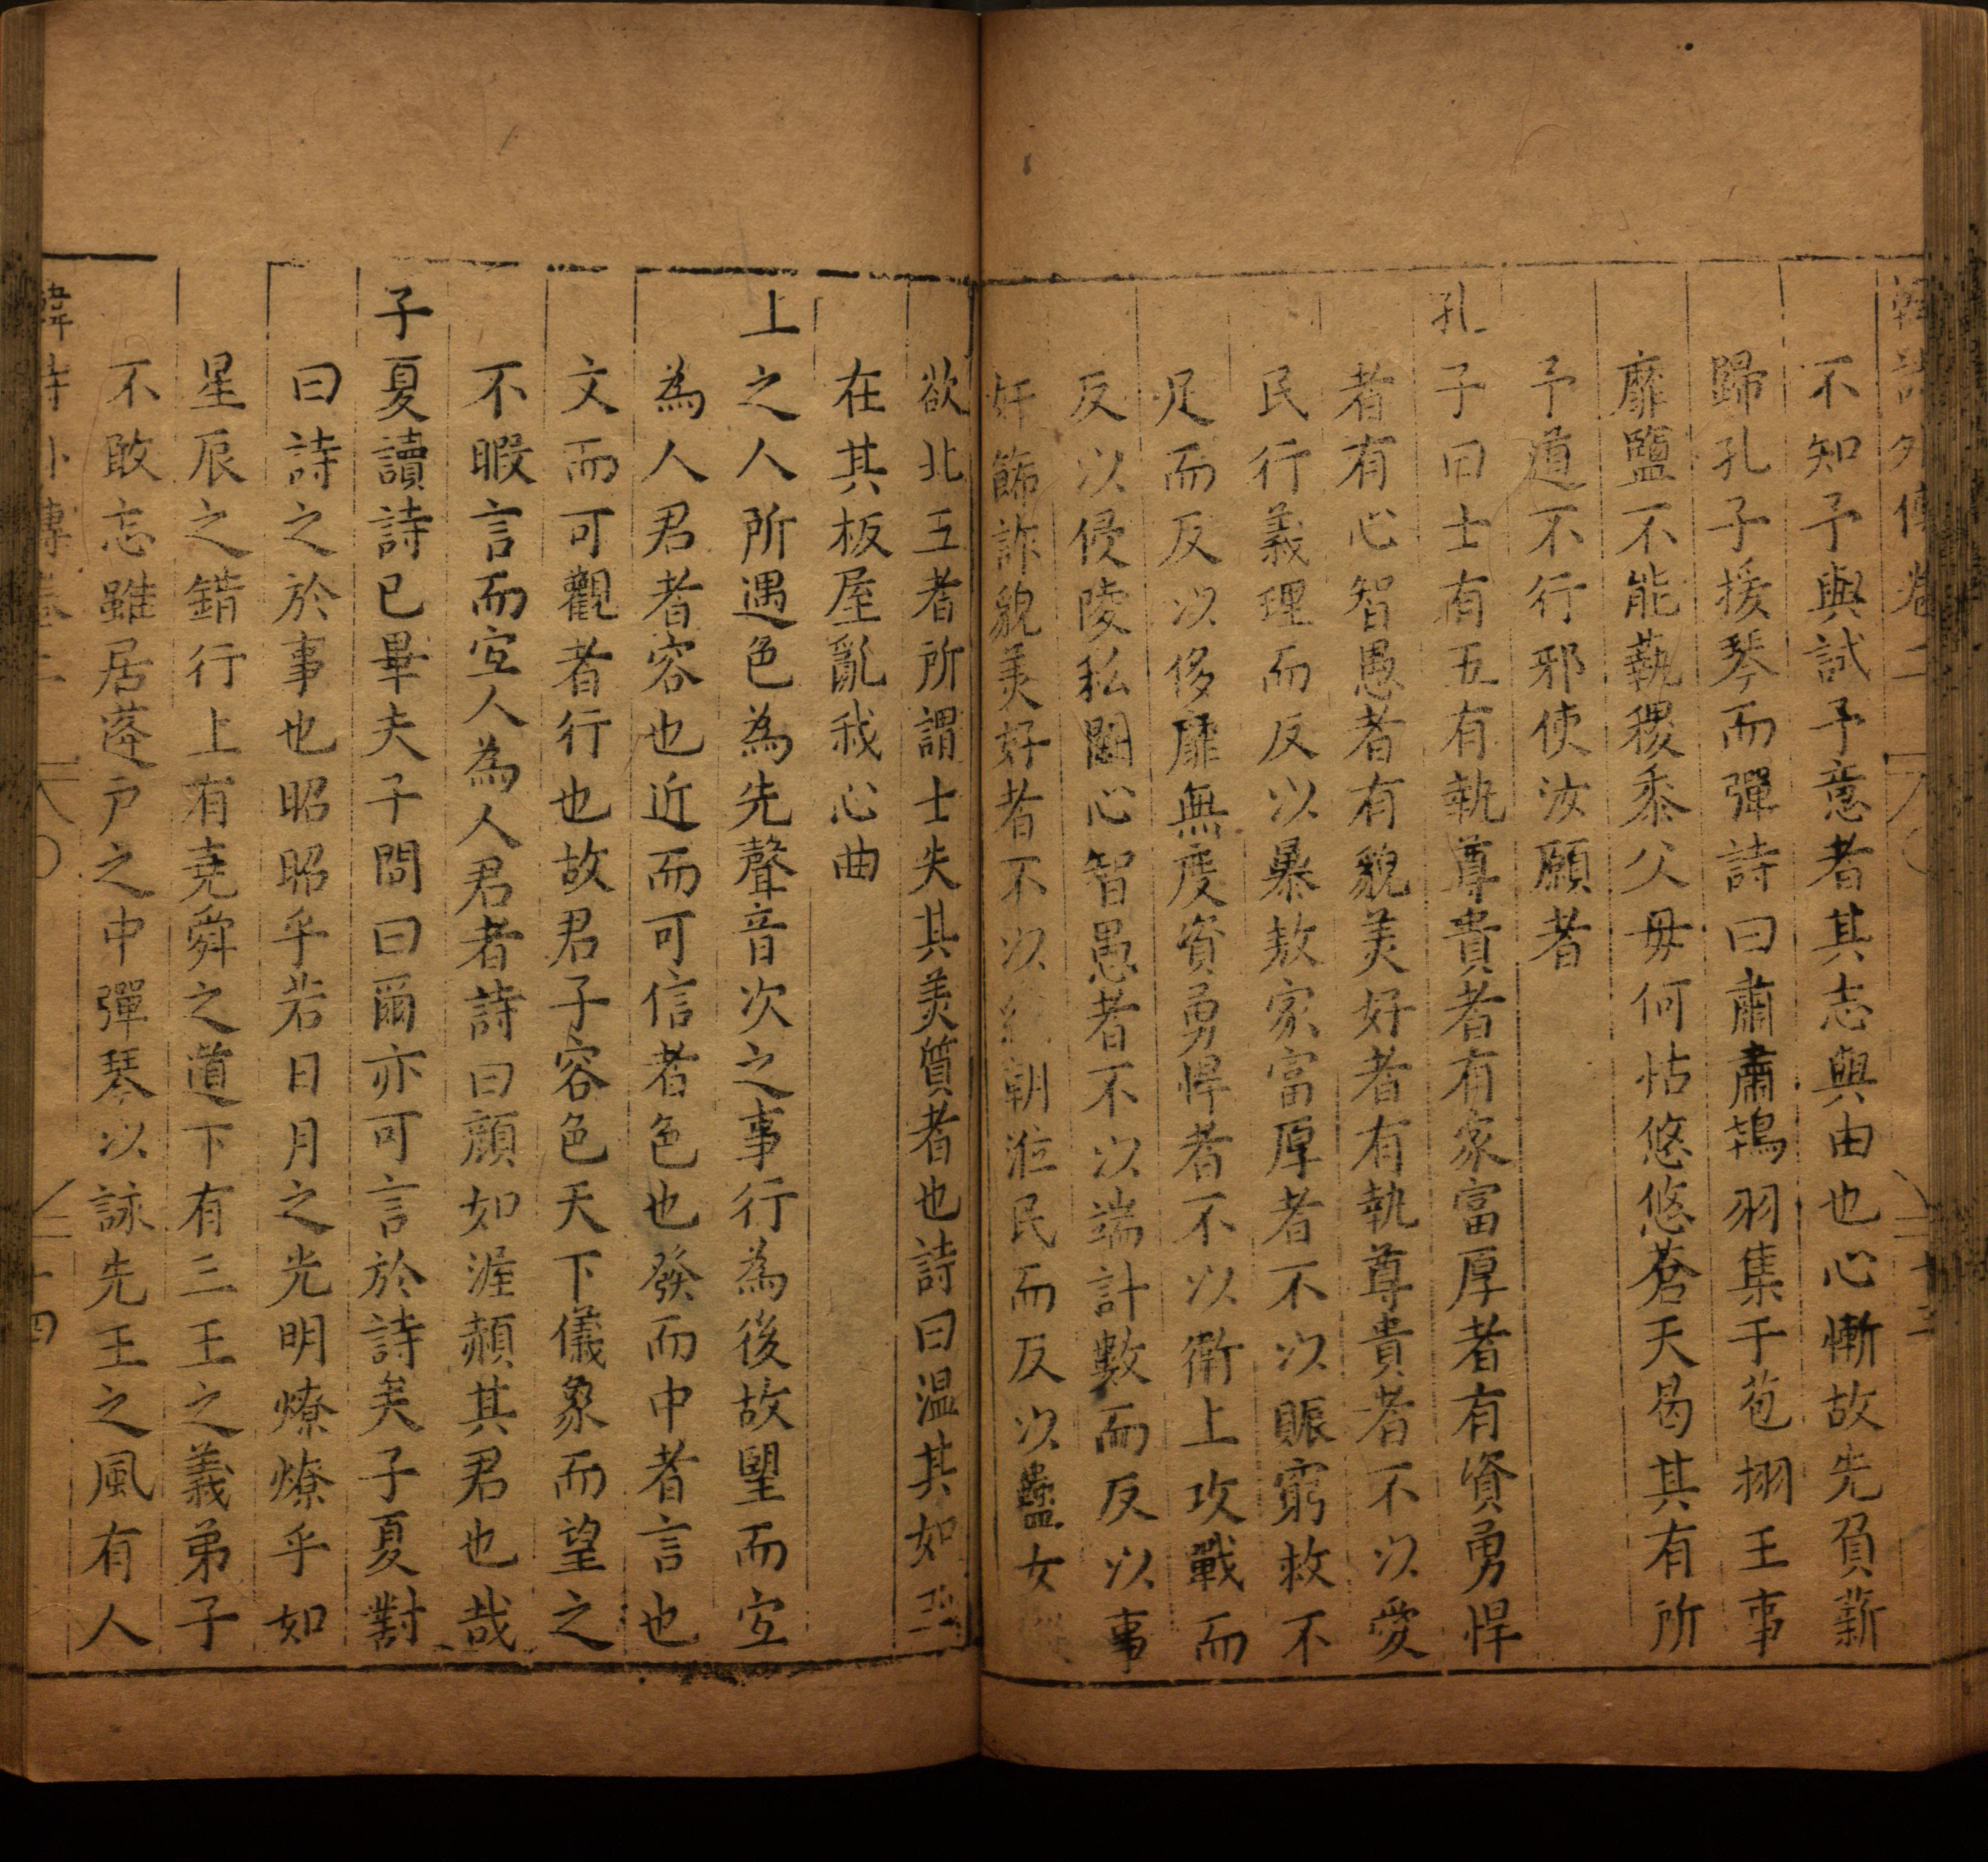 韓詩外傳卷二
不知予與試予意者其志與由也心慚故先負薪
歸孔子援琴而彈詩曰肅肅鴇羽集于苞栩王事
靡盬不能蓺稷黍父毋何怙悠悠蒼天曷其有所
予道不行邪使汝願者
孔子曰士有五有執尊貴者有家富厚者有資勇悍
者有心智愚者有貌美好者有執尊貴者不以愛
民行義理而反以暴敖家富厚者不以賑窮救不
足而反以侈靡無度資勇悍者不以衛上攻戰而
反以侵陵私鬬心智愚者不以端計數而反以事
奸飾詐貌美好者不以統朝涖民而反以蠱女
欲此五者所謂士失其美質者也詩曰温其如玉
在其板屋亂我心曲
上之人所遇色為先聲音次之事行為後故望而宜
為人君者容也近而可信者色也發而中者言也
文而可觀者行也故君子容色天下儀象而望之
不暇言而宜人為人君者詩曰顔如渥頳其君也哉
子夏讀詩已畢夫子問曰爾亦可言於詩矣子夏對
曰詩之於事也昭昭乎若日月之光明燎燎乎如
星辰之錯行上有堯舜之道下有三王之義弟子
不敢忘雖居蓬戸之中彈琴以詠先王之風有人